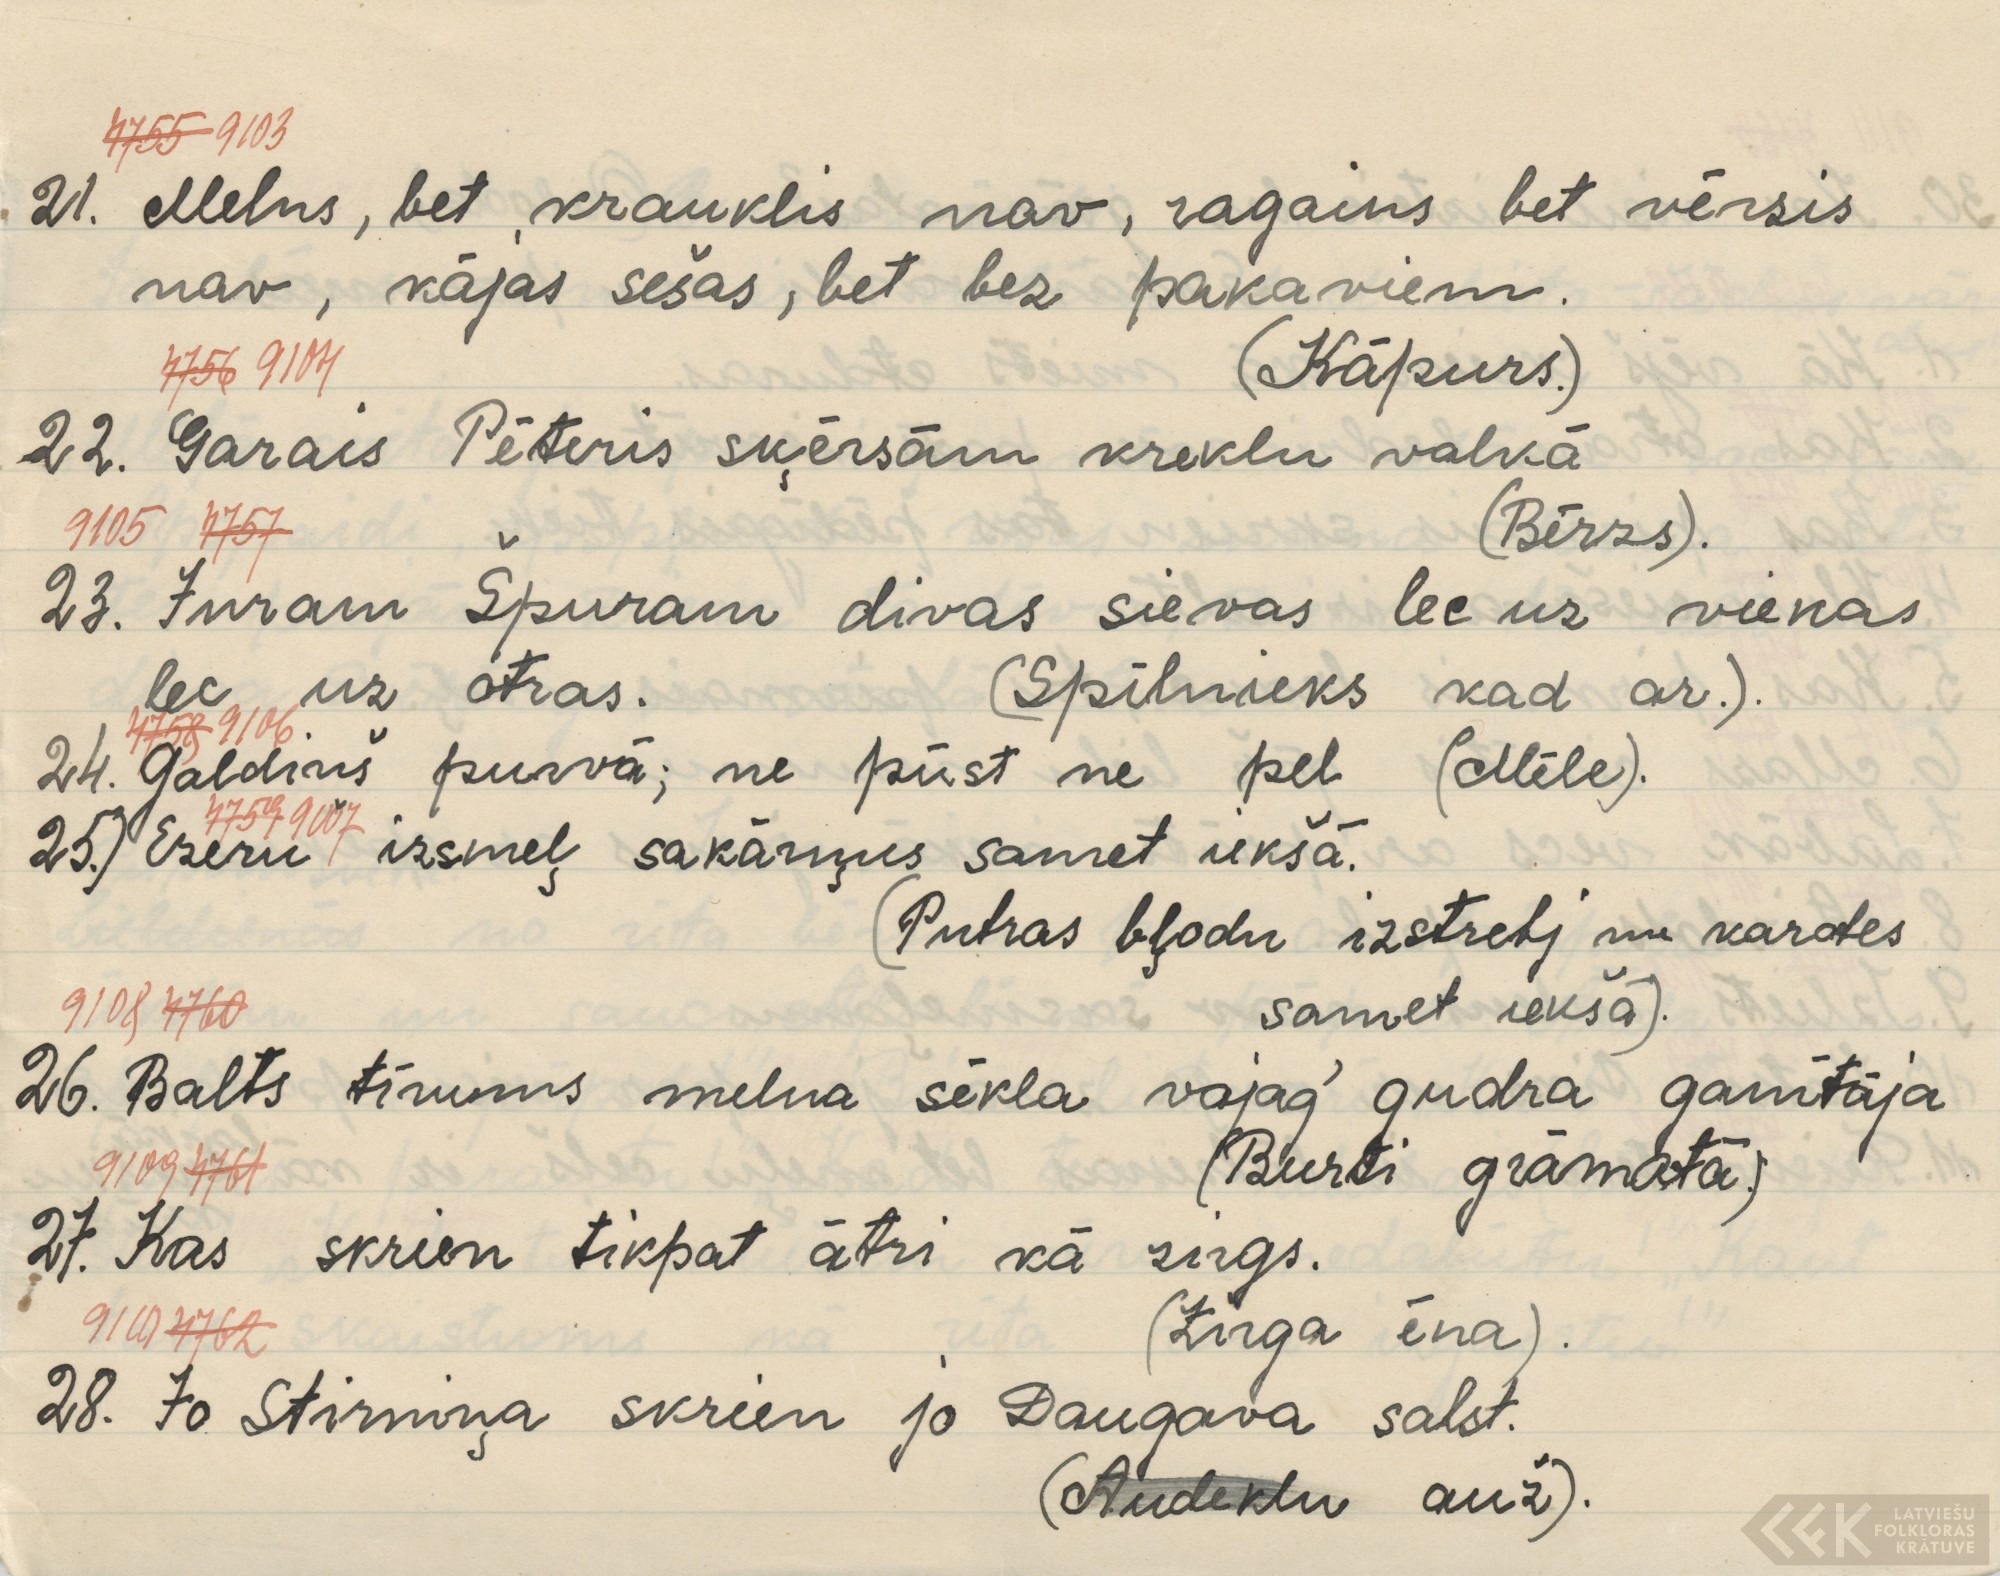 4755 9103
21. Melns, bet krauklis nav, ragains bet vērsis
nav, kājas sešas, bet bez pakaviem.
(Kāpurs.)
4756 9104
22. Garais Pēteris sķērsām kreklu valkā
(Bērzs).
9105 4757
23. Juram Špuram divas sievas lec uz vienas
lec uz otras. (Spīlnieks kad ar.).
4758 9106
24. Galdiņš purvā; ne pūst ne pel (Mēle).
4759 9107
25.) Ezeru izsmeļ sakārņus samet iekšā.
(Putras bļodu izstrebj un karotes
samet iekšā).
9108 4760
26. Balts tīrums melna sēkla vajag' gudra ganītāja
(Burti grāmatā.)
9109 4761
27. Kas skrien tikpat ātri kā zirgs.
(Zirga ēna).
9110 4762
28. Jo Stirniņa skrien jo Daugava salst.
(Audeklu auž).
LATVIEŠU
FOLKLORAS
KRĀTUVE